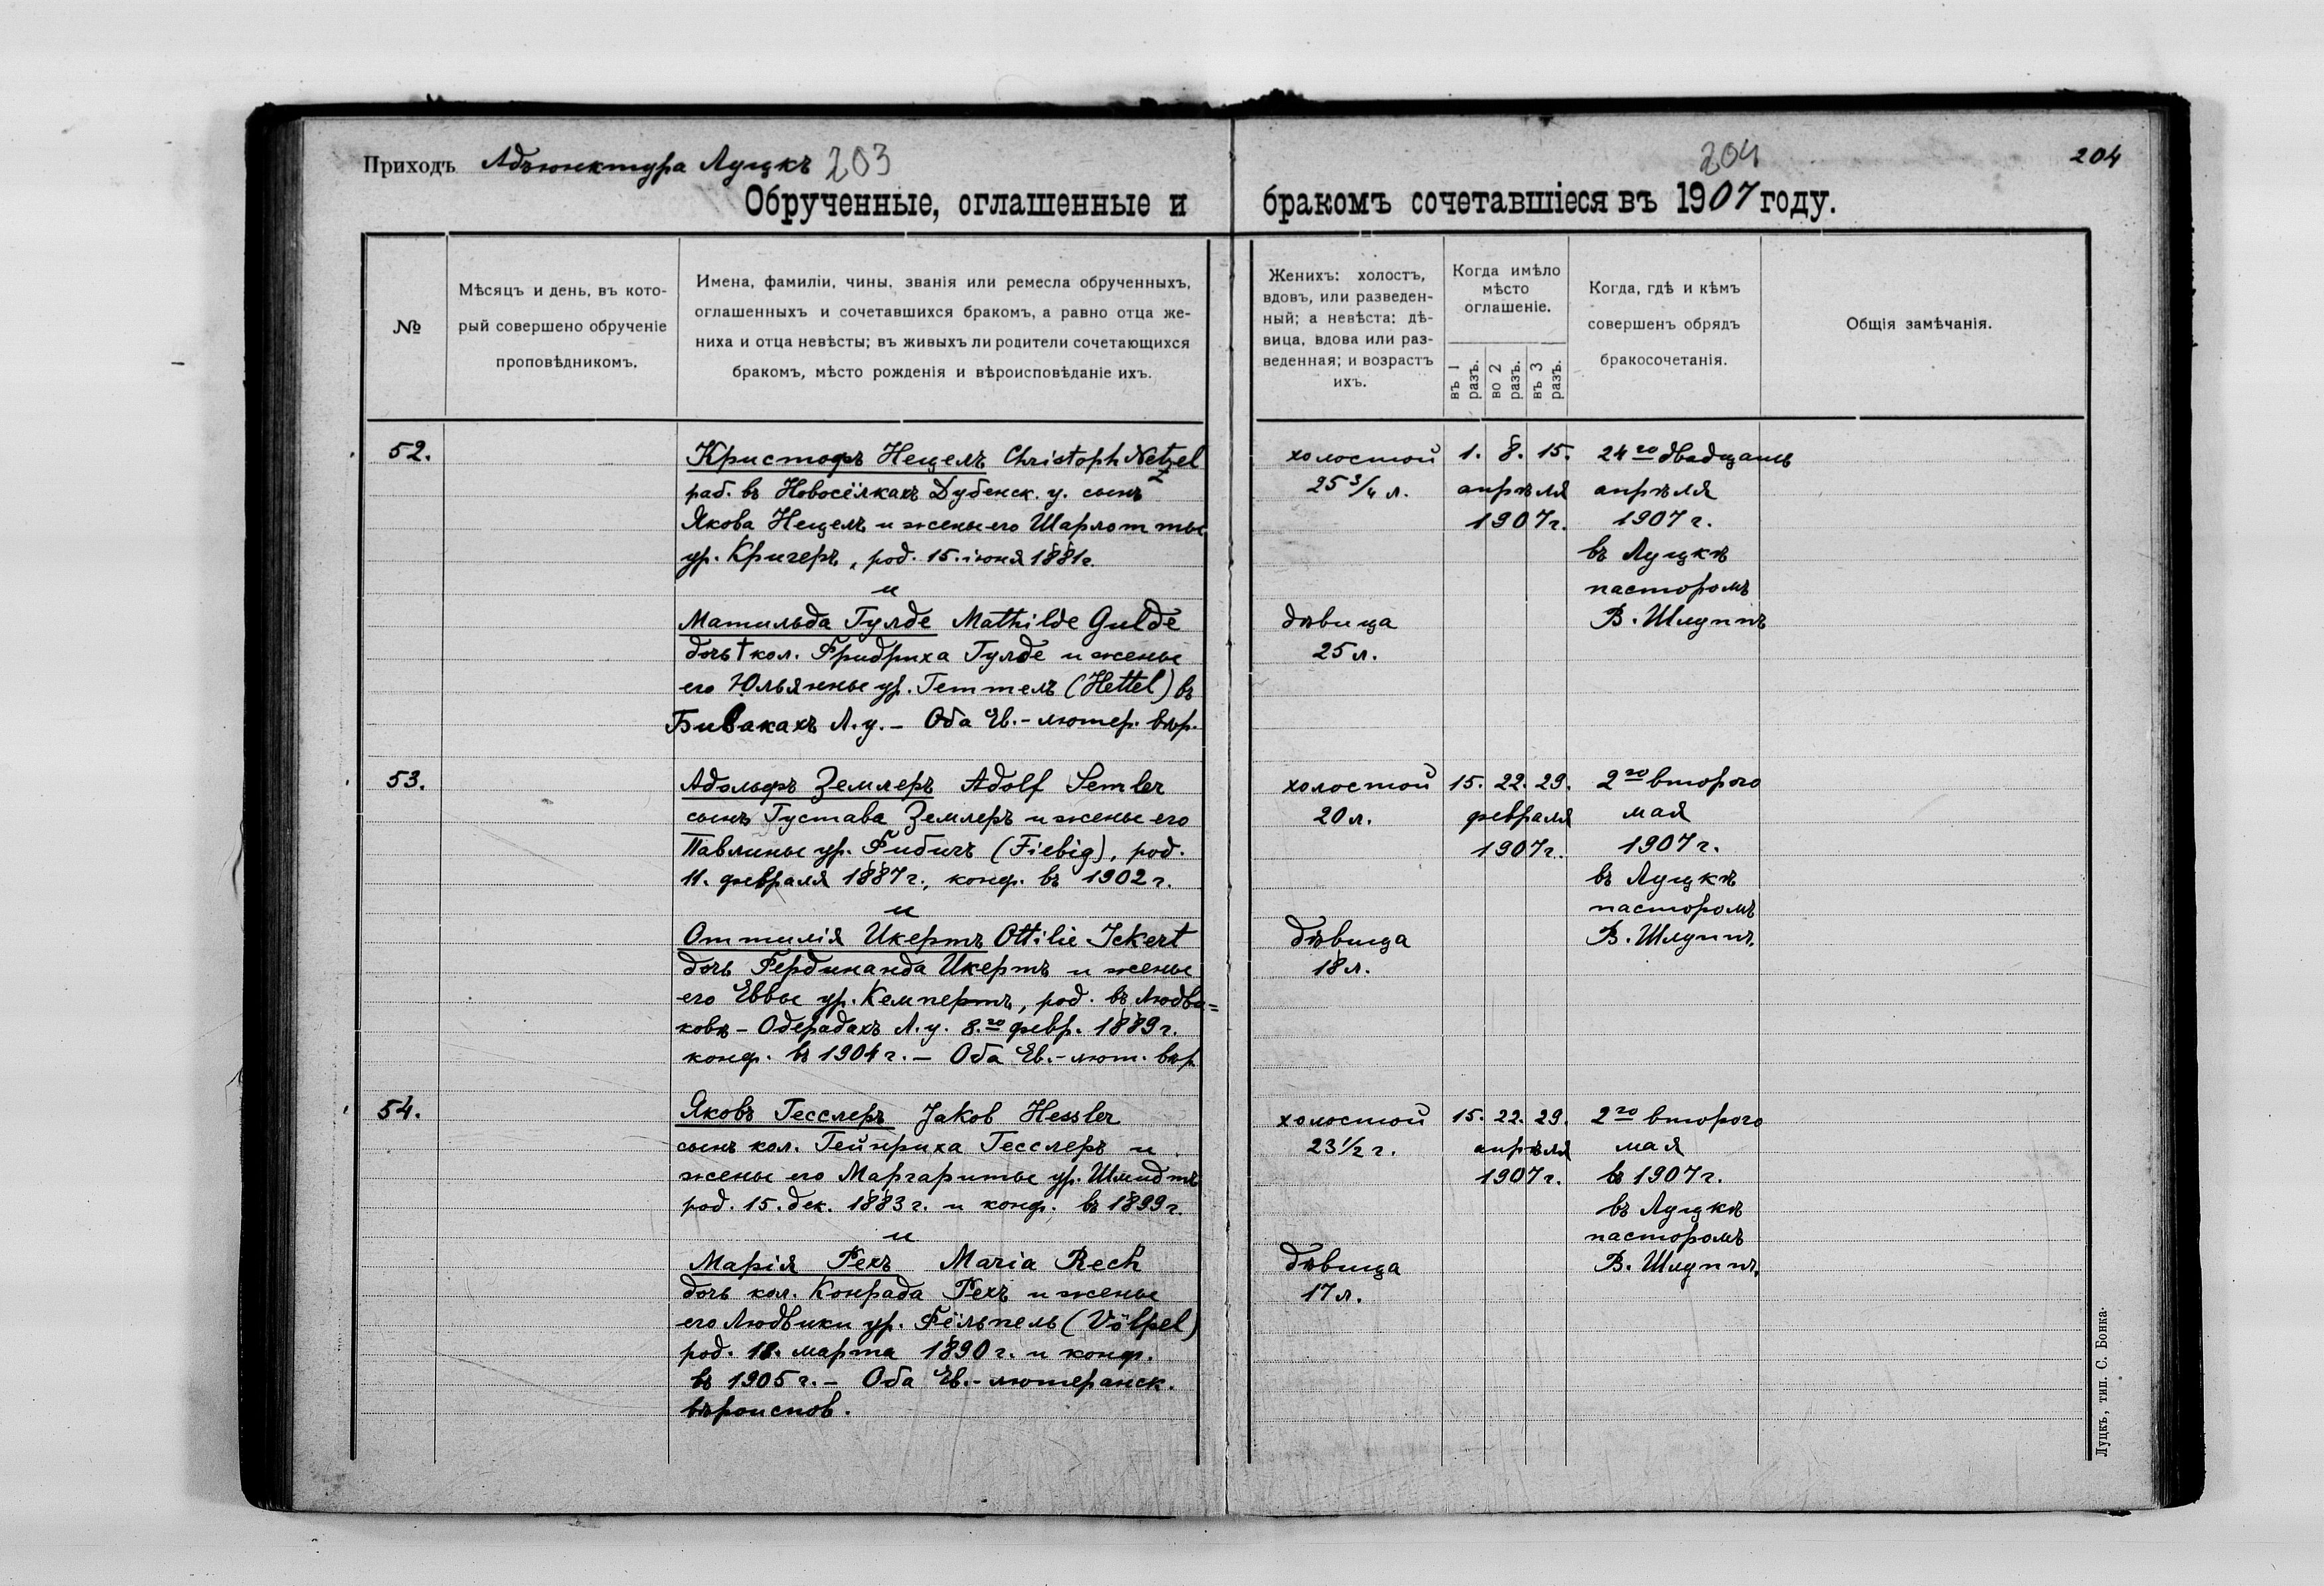 Приходъ Адъюнктура Луцкъ 203
204
204
Обрученные, оглашенные и бракомъ сочетавшіеся въ 1907 году.
№
Мѣсяцъ и день, въ кото-
рый совершено обрученіе
проповѣдникомъ.
Имена, фамиліи, чины, званія или ремесла обрученныхъ,
оглашенныхъ и сочетавшихся бракомъ, а равно отца же-
ниха и отца невѣсты; въ живыхъ ли родители сочетающихся
бракомъ, мѣсто рожденія и вѣроисповѣданіе ихъ.
Женихъ: холостъ,
вдовъ, или разведен-
ный; а невѣста: дѣ-
вица, вдова или раз-
веденная; и возрастъ
ихъ.
Когда имѣло
мѣсто
оглашеніе.
въ 1 разъ.
во 2 разъ.
въ 3 разъ.
Когда, гдѣ и кѣмъ
совершенъ обрядъ
бракосочетанія.
Общія замѣчанія.
52.
Кристофъ Нецелъ Christoph Netzel
раб. въ Новосёлкахъ Дубенск. у. сынъ
Якова Нецелъ и жены его Шарлотты
ур. Кригеръ, род. 15. іюня 1881г.
и
Матильда Гулде Mathilde Gulde
дочь † кол. Фридриха Гулде и жены
его Юльянны ур. Геттелъ (Hettel) въ
Бивакахъ Л. у. – Оба Ев.-лютер. вѣр.
холостой
25 3/4 л.
дѣвица
25 л.
1. 8. 15.
апрѣля
1907г.
24го двадцать
апрѣля
1907 г.
въ Луцкѣ
пасторомъ
В. Шлуппъ
53.
Адольфъ Землеръ Adolf Semler
сынъ Густава Землеръ и жены его
Павлины ур. Фибигъ (Fiebig), род.
11. февраля 1887 г., конф. въ 1902 г.
и
Оттилія Икертъ Ottilie Ickert
дочь Фердинанда Икертъ и жены
его Еввы ур. Кемпертъ, род. въ Людва=
ковѣ – Одерадахъ Л. у. 8.го февр. 1889 г.
конф. въ 1904 г. – Оба Ев.-лют. вѣр
холостой
20 л.
дѣвица
18 л.
15. 22. 29.
февраля
1907 г.
2го второго
мая
1907 г.
въ Луцкѣ
пасторомъ
В. Шлуппъ.
54.
Яковъ Гесслеръ Jakob Hessler
сынъ кол. Гейнриха Гесслеръ и
жены его Маргариты ур. Шмидтъ
род. 15. дек. 1883 г. и конф. въ 1899 г.
и
Марія Рехъ Maria Rech
дочь кол. Конрада Рехъ и жены
его Людвики ур. Фёльпелъ (Völpel)
род. 18. марта 1890 г. и конф.
въ 1905 г. – Оба Ев.-лютеранск.
вѣроиспов.
холостой
23 1/2 г.
дѣвица
17 л.
15. 22. 29.
апрѣля
1907 г.
2го второго
мая
въ 1907 г.
въ Луцкѣ
пасторомъ
В. Шлуппъ.
Луцкъ, тип. С. Бонка.